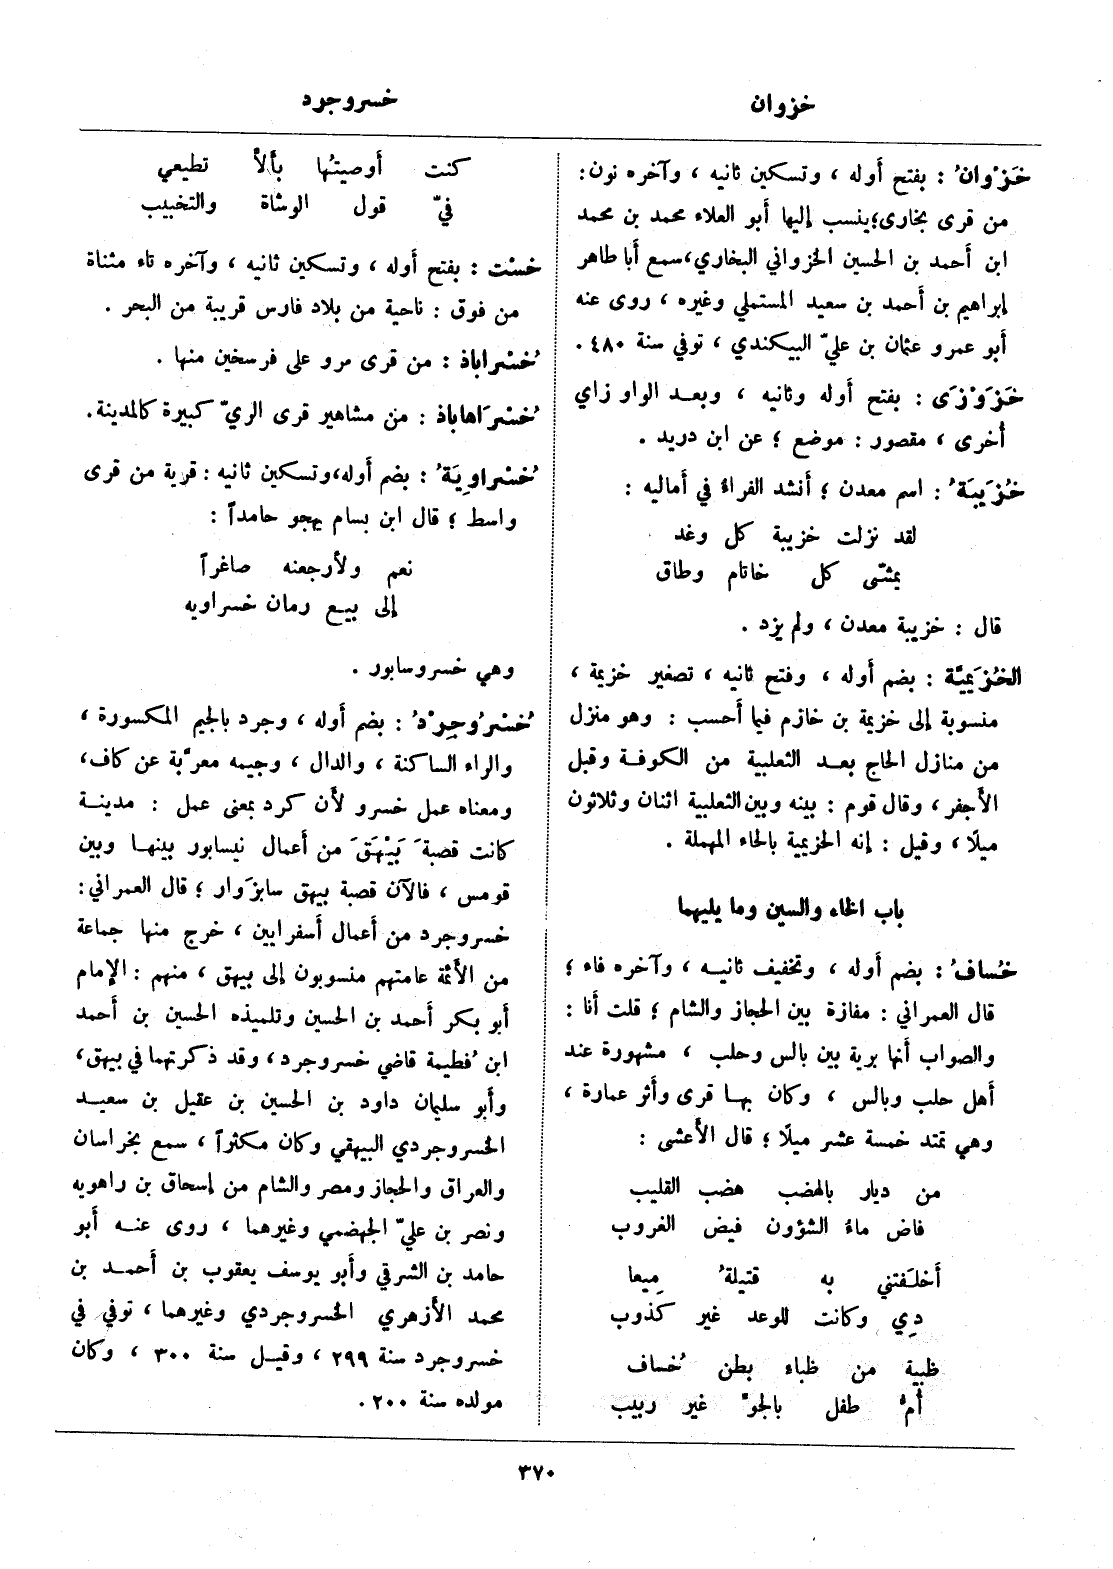 خزوان
خسروجرد
خَزْوان ُ : بفتح أوله ، وتسكين ثانيه ، وآخره نون :
من قرى بخارى؛ ينسب إليها أبو العلاء محمد بن محمد
ابن أحمد بن الحسين الخزواني البخاري، سمع أبا طاهر
إبراهيم بن أحمد بن سعيد المستملي وغيره ، روى عنه
أبو عمرو عثمان بن عليّ البيكندي ، توفي سنة ٤٨٠ .
خَزَوْزَى : بفتح أوله وثانيه ، وبعد الواو زاي
أخرى ، مقصور : موضع ؛ عن ابن دريد .
خُزَيبَة ُ : اسم معدن ؛ أنشد الفراءُ في أماليه :
لقد نزلت خزيبة كل وغد
يمشّى كل خاتام وطاق
قال : خزيبة معدن ، ولم يزد .
الخُزَيميّة : بضم أوله ، وفتح ثانيه ، تصغير خزيمة ،
منسوبة إلى خزيمة بن خازم فيما أحسب : وهو منزل
من منازل الحاج بعد الثعلبية من الكوفة وقبل
الأجفر ، وقال قوم : بينه وبين الثعلبية اثنان وثلاثون
ميلًا ، وقيل : إنه الحزيمية بالحاء المهملة .
باب الخاء والسين وما يليهما
خُساف ُ : بضم أوله ، وتخفيف ثانيه ، وآخره فاء ؛
قال العمراني : مفازة بين الحجاز والشام ؛ قلت أنا :
والصواب أنها برية بين بالس وحلب ، مشهورة عند
أهل حلب وبالس ، وكان بها قرى وأثر عمارة ،
وهي تمتد خمسة عشر ميلًا ؛ قال الأعشى :
من ديار بالهضب هضب القليب
فاض ماءُ الشؤون فيض الغروب
أخلَفتني به قتيلة ُ مِيعا
دي وكانت للوعد غير كذوب
ظبية من ظباء بطن خُساف
أمّ طفل بالجوّ غير ربيب
كنت أوصيتُها بألاّ تطيعي
فيّ قول الوشاة والتخبيب
خَسْت : بفتح أوله ، وتسكين ثانيه ، وآخره تاء مثناة
من فوق : ناحية من بلاد فارس قريبة من البحر .
خُسْراباذ : من قرى مرو على فرسخين منها .
خُسْرَاهاباذ : من مشاهير قرى الريّ كبيرة كالمدينة .
خُسْراوِيَة ُ : بضم أوله، وتسكين ثانيه : قرية من قرى
واسط ؛ قال ابن بسام يهجو حامداً :
نعم ولأرجعنه صاغراً
إلى بيع رمان خسراويه
وهي خسروسابور .
خُسْرُوجِرْد ُ : بضم أوله ، وجرد بالجيم المكسورة ،
والراء الساكنة ، والدال ، وجيمه معرّبة عن كاف ،
ومعناه عمل خسرو لأن كرد بمعنى عمل : مدينة
كانت قصبة َ بَيْهَقَ من أعمال نيسابور بينها وبين
قومس ، فالآن قصبة بيهق سابزَوار ؛ قال العمراني :
خسروجرد من أعمال أسفرايين ، خرج منها جماعة
من الأئمة عامتهم منسوبون إلى بيهق ، منهم : الإمام
أبو بكر أحمد بن الحسين وتلميذه الحسين بن أحمد
ابن فُطيمة قاضي خسروجرد ، وقد ذكرتهما في بيهق ،
وأبو سليمان داود بن الحسين بن عقيل بن سعيد
الخسروجردي البيهقي وكان مكثراً ، سمع بخراسان
والعراق والحجاز ومصر والشام من إسحاق بن راهويه
ونصر بن عليّ الجهضمي وغيرهما ، روى عنه أبو
حامد بن الشرقي وأبو يوسف يعقوب بن أحمد بن
محمد الأزهري الخسروجردي وغيرهما ، توفي في
خسروجرد سنة ٢٩٩ ، وقيل سنة ٣٠٠ ، وكان
مولده سنة ٢٠٠ .
٣٧٠